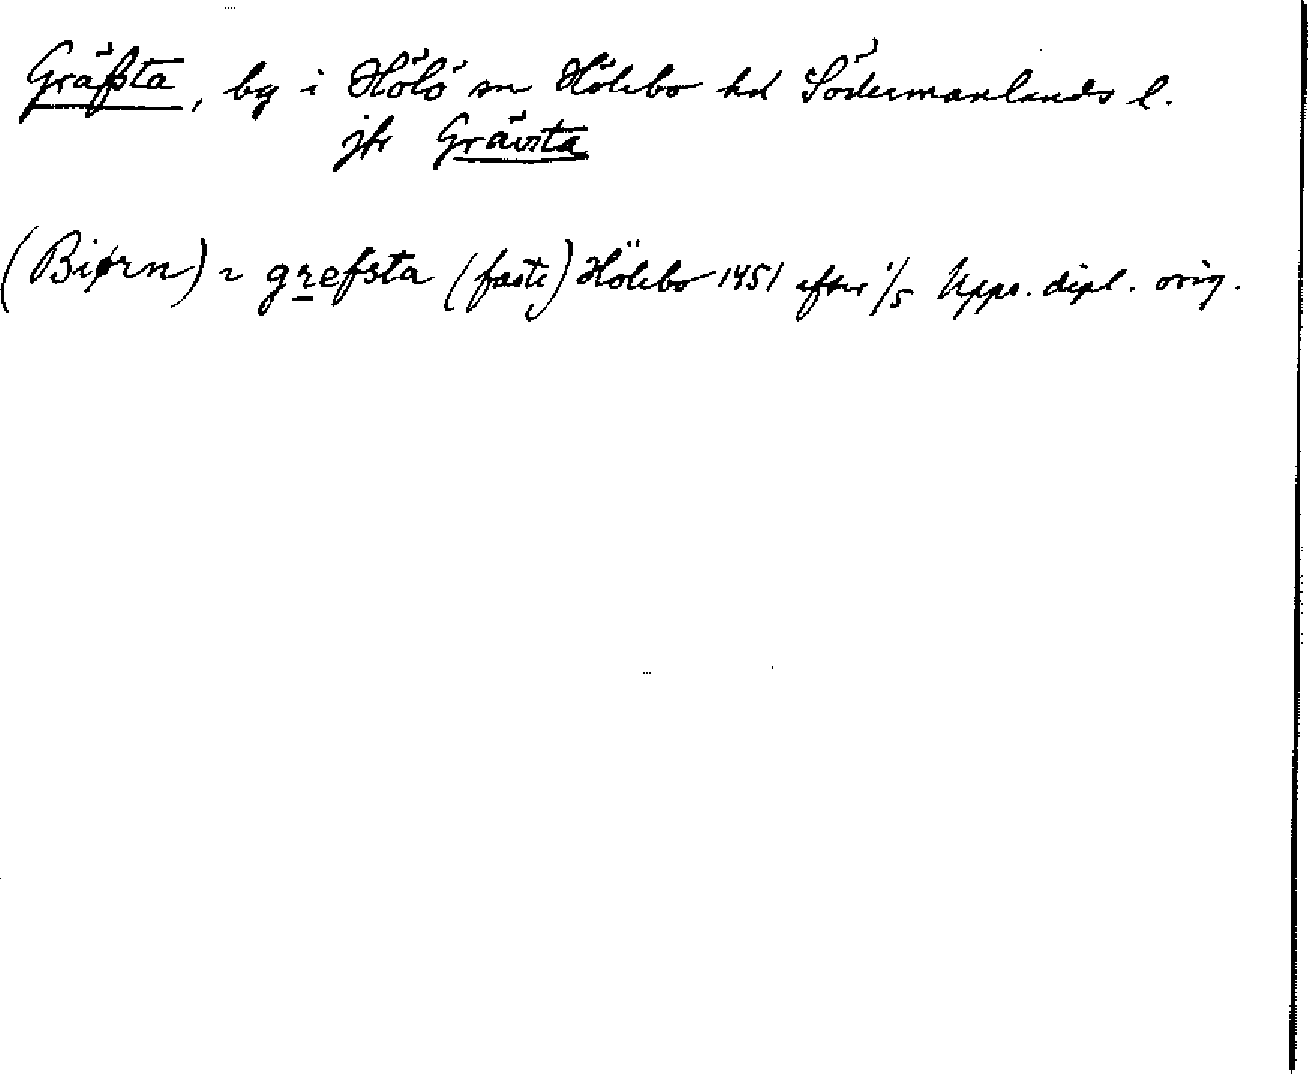 Gräfsta, by i Hölö sn Hölebo hd Södermanlands l.
jfr Grävsta
(Biørn) ~ grefsta (faste) Hölebo 1451 efter 1/5 Upps. dipl. orig.